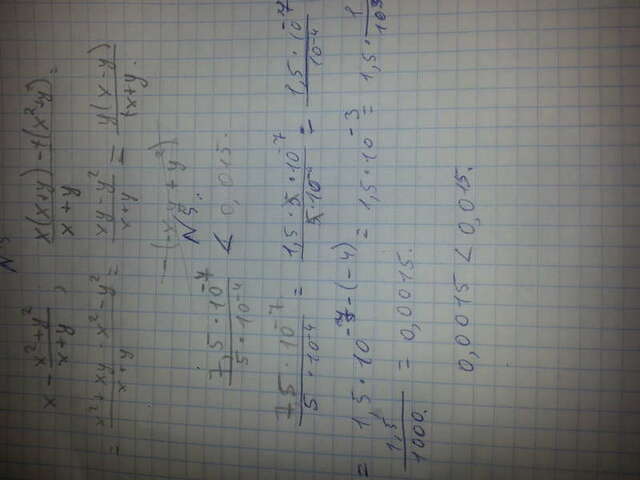 N 3
x - \frac{x²+y²}{x+y} ; \frac{x(x+y) -1(x²+y²)}{x+y} =
= \frac{x²+xy - x² - y²}{x+y} = \frac{xy - y²}{x+y} = \frac{y(x-y)}{x+y.}
-(-xy + y²)
N 5.
\frac{7,5 · 10⁻⁷}{5 · 10⁻⁴} < 0,015.
\frac{7,5 · 10⁻⁷}{5 · 10⁻⁴} = \frac{1,5 · 5 · 10⁻⁷}{5 · 10⁻⁴} = \frac{1,5 · 10⁻⁷}{10⁻⁴}
= 1,5 · 10⁻⁷⁻⁽⁻⁴⁾ = 1,5 · 10⁻³ = 1,5 · \frac{1}{10³}
\frac{1,5}{1000.} = 0,0015.
0,0015 < 0,015.